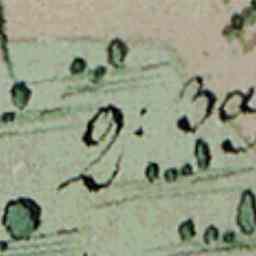 2: 3a